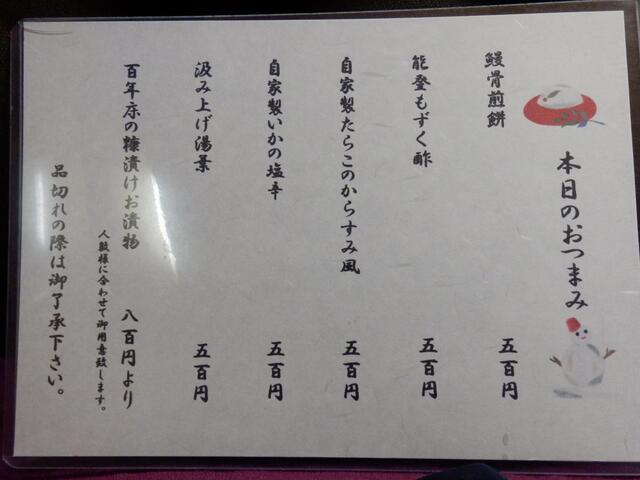 本日のおつまみ
鰻骨煎餅 五百円
能登もずく酢 五百円
自家製たらこのからすみ風 五百円
自家製いかの塩辛 五百円
汲み上げ湯葉 五百円
百年床の糠漬けお漬物 八百円より
人数様に合わせて御用意致します。
品切れの際は御了承下さい。